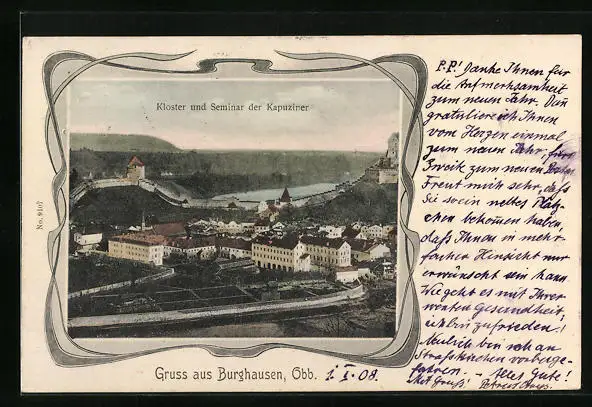 Kloster und Seminar der Kapuziner
No. 9107
Gruss aus Burghausen, Obb. 1. I. 08.
P.P.! Danke Ihnen für
die Aufmerksamkeit
zum neuen Jahr. Dan
gratuliere ich Ihnen
vom Herzen einmal
zum neuen Jahr, fürs
Zweite zum neuen
Freut mich sehr, daß
Sie so ein nettes Plätz-
chen bekommen haben,
daß Ihnen in mehr-
facher Hinsicht nur
erwünscht sein kann
Wie geht es mit Ihrer
werten Gesundheit,
ich bin zufrieden.!
Neulich bin ich an
Strasskirchen vorbeige-
fahren. – Alles Gute!
Mit Gruß!